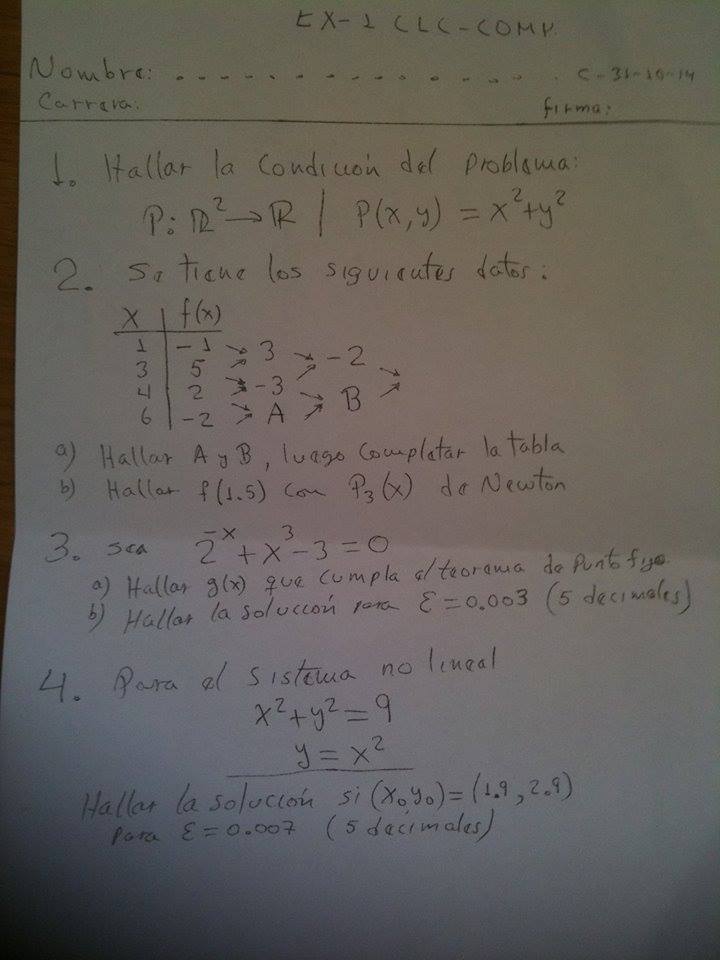 EX-1 CLC-COMP.
Nombre: . . . . . . . . . . . . . . C-31-10-14
Carrera: firma:
1. Hallar la Condición del Problema:
P: ℝ² → ℝ | P(x,y) = x²+y²
2. Se tiene los siguientes datos:
x | f(x)
1 | -1
3 -2
3 | 5
4 | 2
-3 B
6 | -2
A
a) Hallar A y B, luego completar la tabla
b) Hallar f(1.5) con P₃(x) de Newton
3. sea 2⁻ˣ + x³ - 3 = 0
a) Hallar g(x) que cumpla el teorema de punto fijo
b) Hallar la solución para ε=0.003 (5 decimales)
4. Para el sistema no lineal
x²+y²=9
y = x²
Hallar la solución si (x₀y₀)=(1.9, 2.9)
para ε=0.007 (5 decimales)